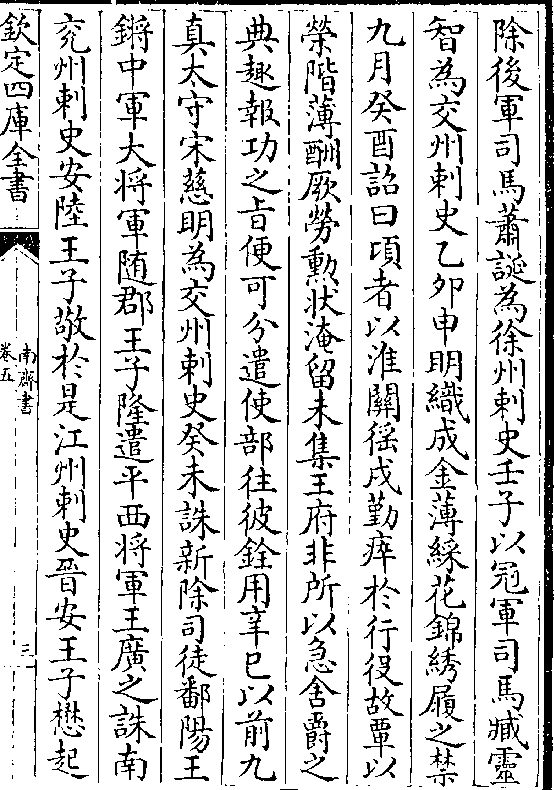 除後軍司馬蕭誕為徐州刺史壬子以冠軍司馬臧靈
智為交州刺史乙卯申明織成金薄綵花錦綉履之禁
九月癸酉詔曰頃者以淮關徭戍勤瘁於行役故覃以
榮階薄酬厥勞勲狀淹留未集王府非所以急舍爵之
典趣報功之旨便可分遣使部往彼銓用辛巳以前九
真太守宋慈明為交州刺史癸未誅新除司徒鄱陽王
鏘中軍大将軍随郡王子隆遣平西将軍王廣之誅南
兖州刺史安陸王子敬於是江州刺史晉安王子懋起
欽定四庫全書
南齊書
卷五
三